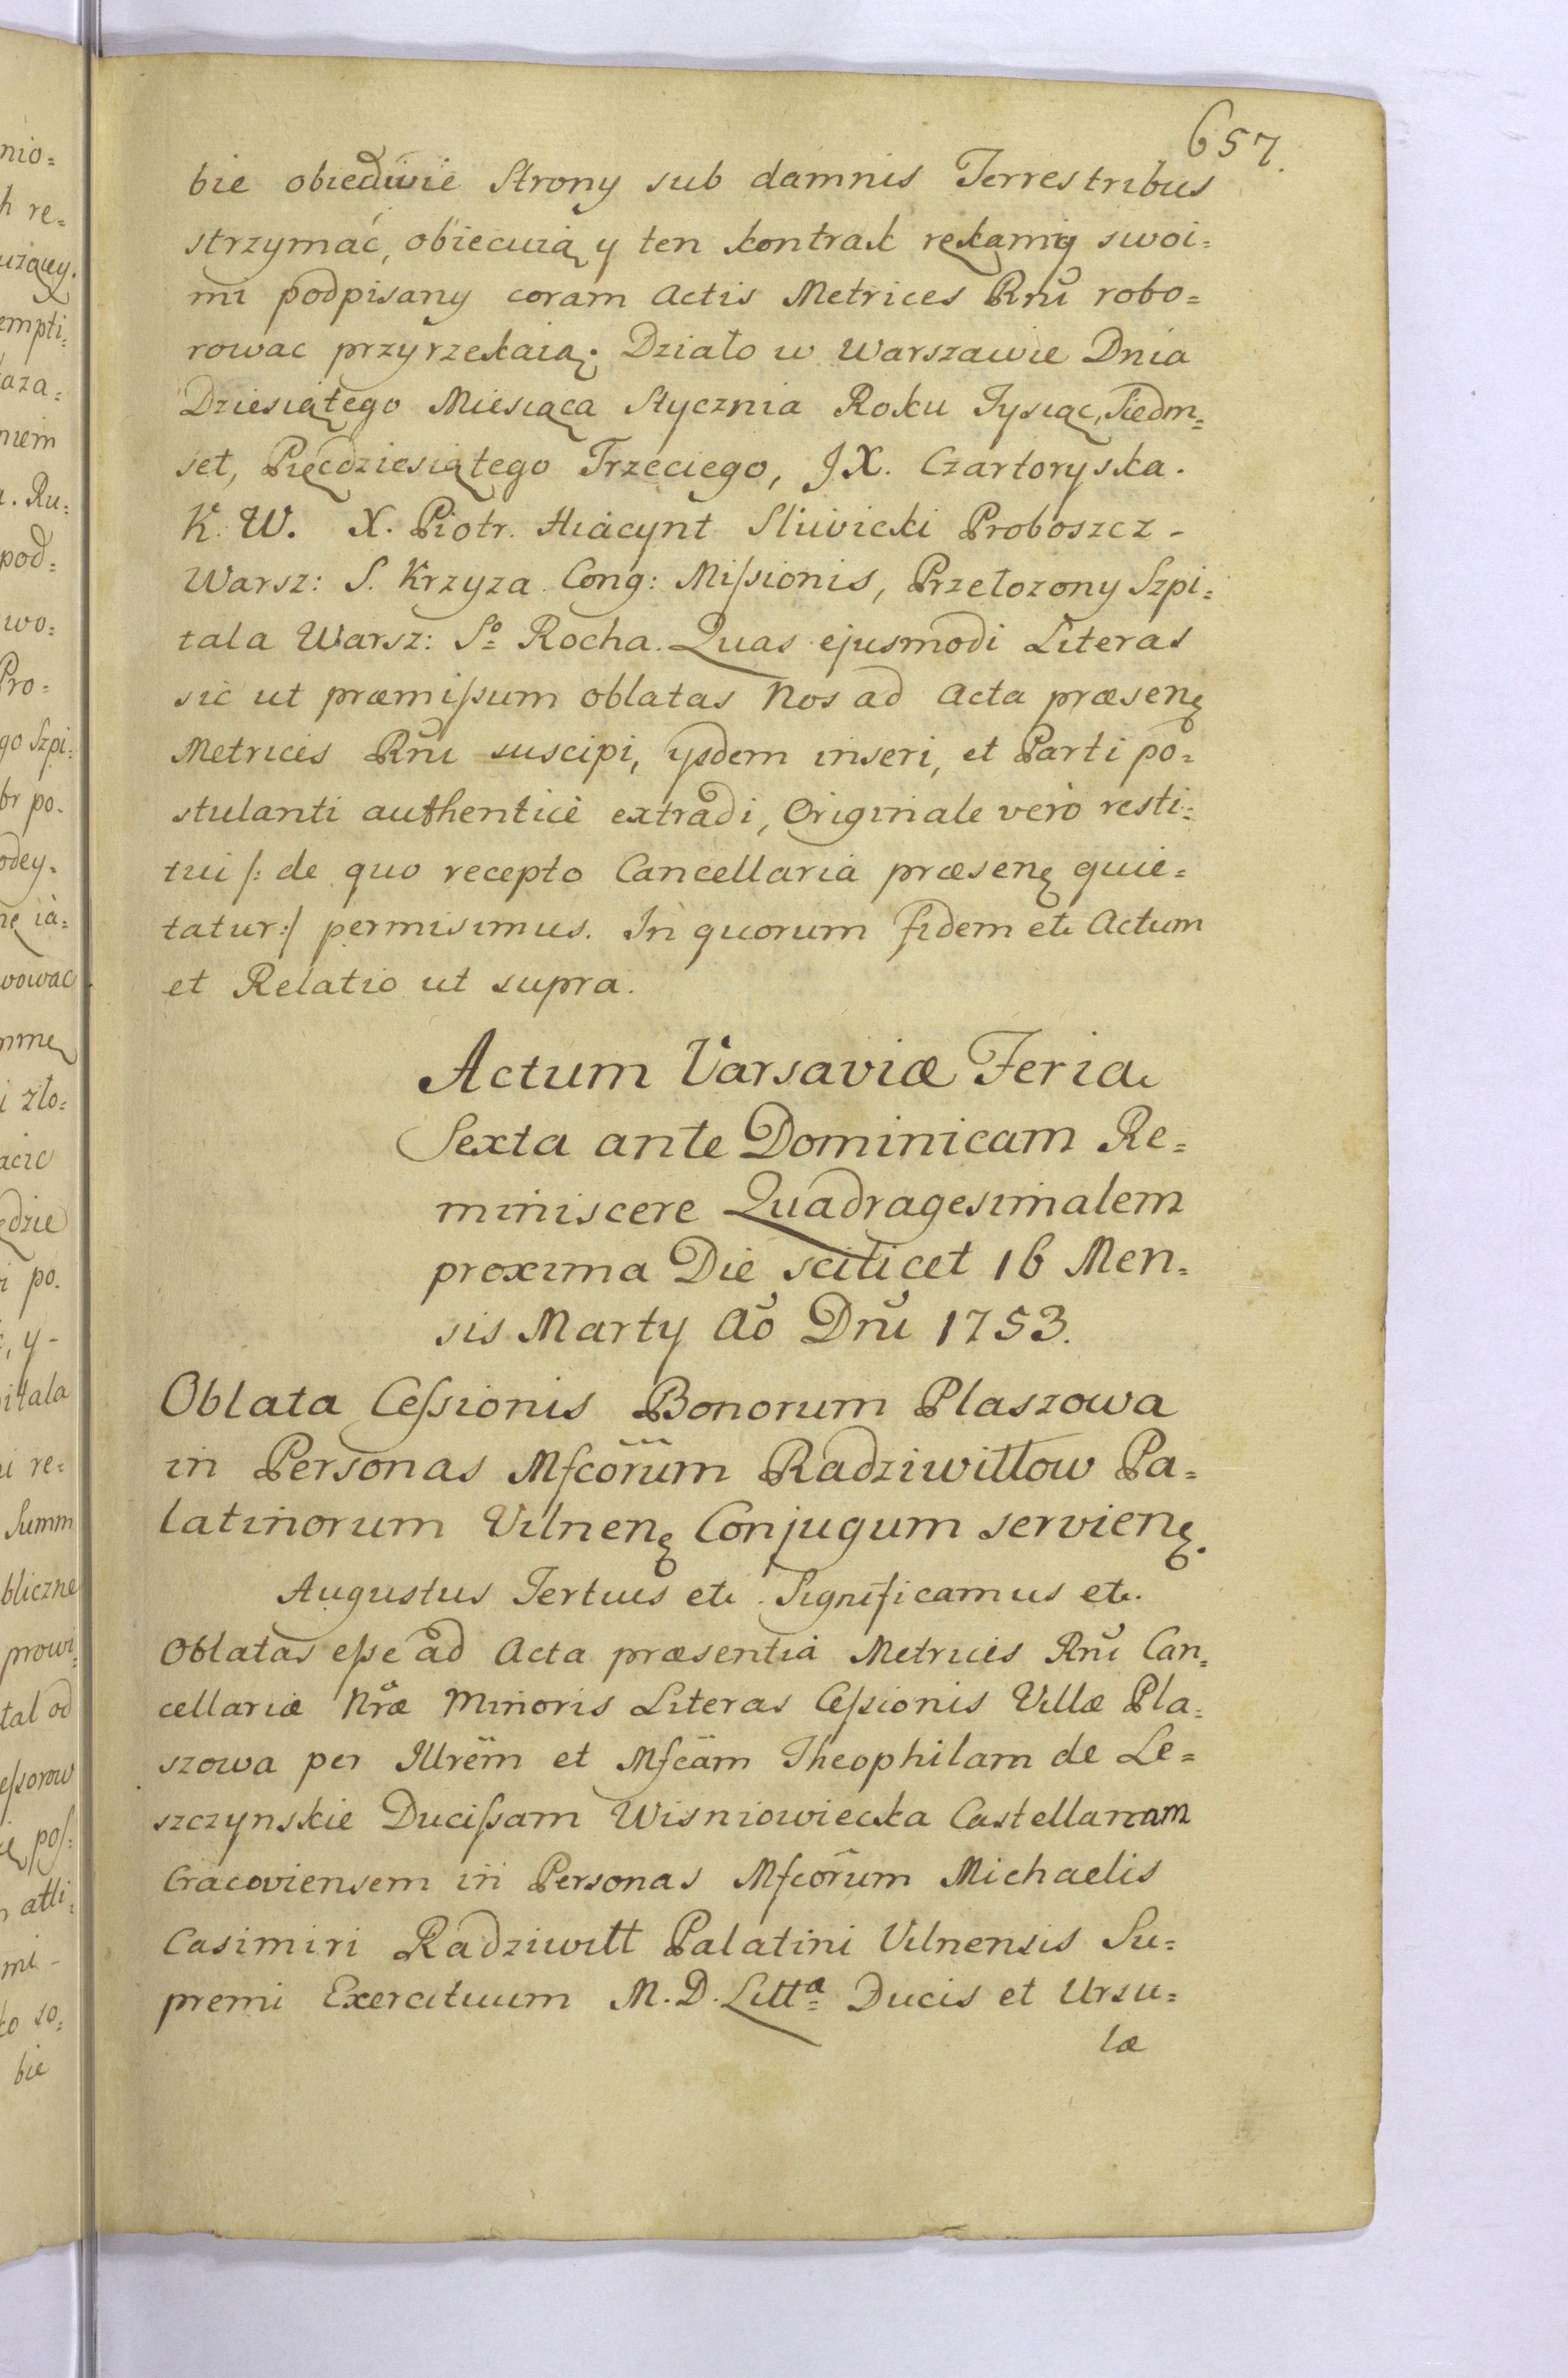 657.
bie obiedwie Strony sub damnis Terrestribus
strzymać, obiecuią y ten kontrakt rękamy swoi=
mi podpisany coram Actis Metrices Rnĩ robo=
rowac przyrzekaią. Działo w Warszawie Dnia
Dziesiątego Miesiąca Stycznia Roku Tysiąc, Siedm=
set, Pięcdziesiątego Trzeciego, J X. Czartoryska.
K. W. X. Piotr. Hiacynt Sliwicki Proboszcz -
Warsz: S. Krzyza Cong: Mißionis, Przełozony Szpi=
tala Warsz: Sº Rocha. Quas ejusmodi Literas
sic ut præmißum oblatas Nos ad Acta præsenę
Metrices Rnĩ suscipi, ysdem inseri, et Parti po=
stulanti authenticè extradi, Originale verò resti=
tui /: de quo recepto Cancellaria præsenę quie=
tatur:/ permisimus. In quorum fidem etc Actum
et Relatio ut supra.
Actum Varsaviæ Feria
Sexta ante Dominicam Re=
miniscere Quadragesimalem
proxima Die scilicet 16 Men=
sis Marty Aõ Dnĩ 1753.
Oblata Ceßionis Bonorum Plaszowa
in Personas Mfcõrum Radziwiłłow Pa=
latinorum Vilnenę Conjugum servienę.
Augustus Tertius etc. Significamus etc.
Oblatas eße ad Acta præsentia Metrices Rnĩ Can=
cellariæ Nræ Minoris Literas Ceßionis Villæ Pla=
szowa per Illrẽm et Mfcãm Theophilam de Le=
szczynskie Ducißam Wisniowiecka Castellanam
Cracoviensem in Personas Mfcõrum Michaelis
Casimiri Radziwiłł Palatini Vilnensis Su=
premi Exercituum M. D. Littª Ducis et Ursu=
læ